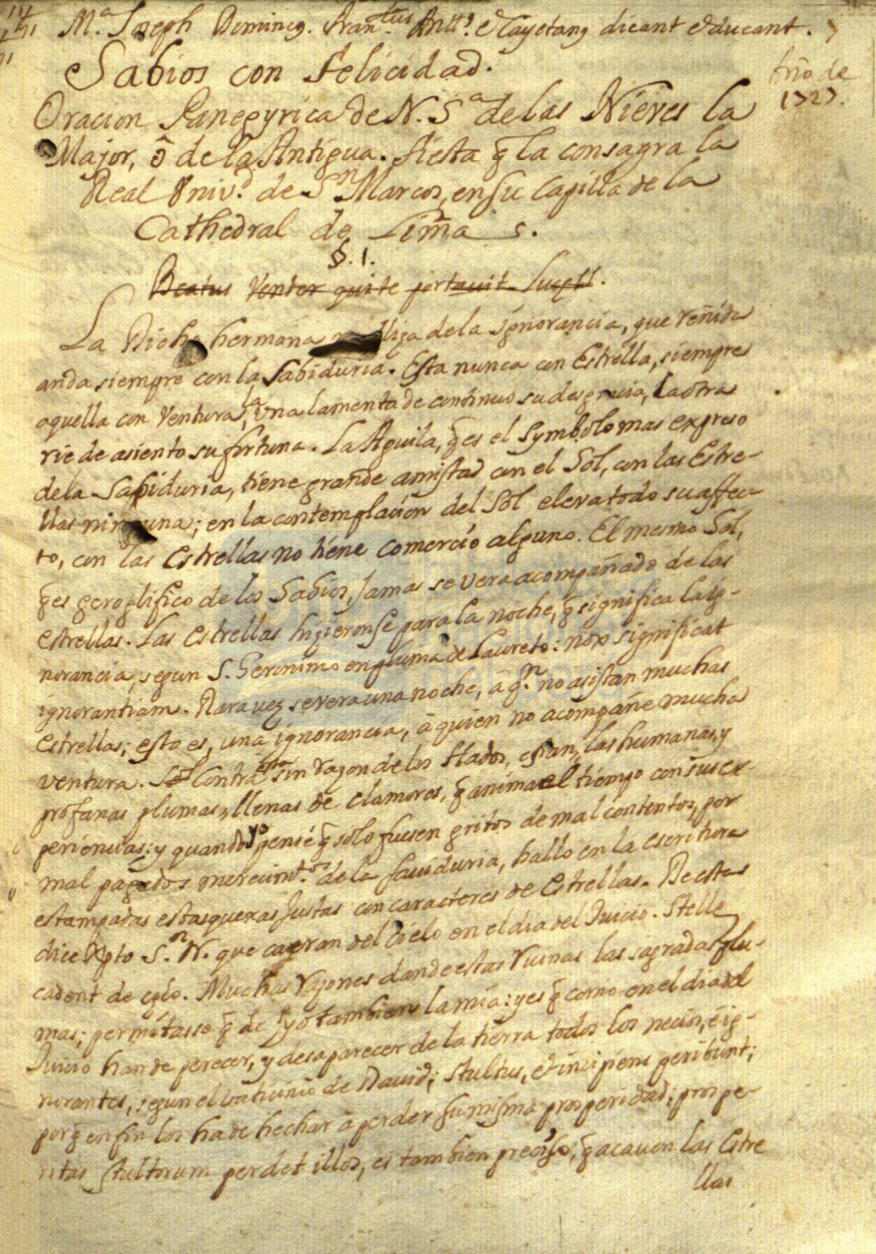 Mª Joseph Dominicq. Franᶜᵗᵘˢ Anttº. et Cayetanq dicant et ducant.
Sabios con felicidad.
Año de
1727.
Oracion Panegyrica de N. Sª de las Nieves la
Major, ô de la Antigua. fiesta q̃ la consagra la
Real Univᵈ. de Sⁿ Marcos, en su Capilla de la
Cathedral de Lima s.
§. 1.
Beatus Venter qui te portavit. Lucę 11.
La Dicha hermana de la Ignorancia, que reñida
anda siempre con la Sabiduria. Esta nunca con Estrella, siempre
aquella con Ventura, la una lamenta de continuo su desgracia, la otra
rie de asiento su fortuna. La Aguila, q̃ es el symbolo mas expreso
de la Sabiduria, tiene grande amistad con el Sol, con las Estre-
llas ninguna; en la contemplacion del Sol eleva todo su affec-
to, con las Estrellas no tiene comercio alguno. El mesmo Sol,
q̃ es geroglifico de los Sabios, jamas se vera acompañado de las
estrellas. Las estrellas hizieronse para la noche, q̃ significa la ig-
norancia, segun S. Geronimo en pluma de Laureto: nox significat
ignorantiam. Rara vez se vera una noche, a qⁿ. no asistan muchas
Estrellas; esto es, una ignorancia, à quien no acompañe mucha
ventura. Contra esta sin razon de los Hados, estan las humanas, y
profanas plumas, llenas de clamores, q̃ anima el tiempo con sus ex-
periencias: y quando yo pensé q̃ solo fuesen gritos de mal contentos, por
mal pagados merecimᵗᵒˢ. de la saviduria, hallo en la escritura
estampadas estas quexas justas con caracteres de Estrellas. De estas
dice Xpto S.ʳ N. que caeran del Cielo en el dia del Juicio. Stelle
cadent de cęlo. Muchas razones dan de estas ruinas las sagradas plu-
mas; permitasse q̃ de yo tambien la mia: y es q̃ como en el dia del
Juicio han de perecer, y desaparecer de la tierra todos los necios, è ig-
norantes, segun el vaticinio de David; stultus, et incipiens peribunt;
porq̃ en fin los ha de hechar à perder su misma prosperidad; prospe-
ritas stultorum perdet illos, es tambien preciso, q̃ acaven las Estre
llas